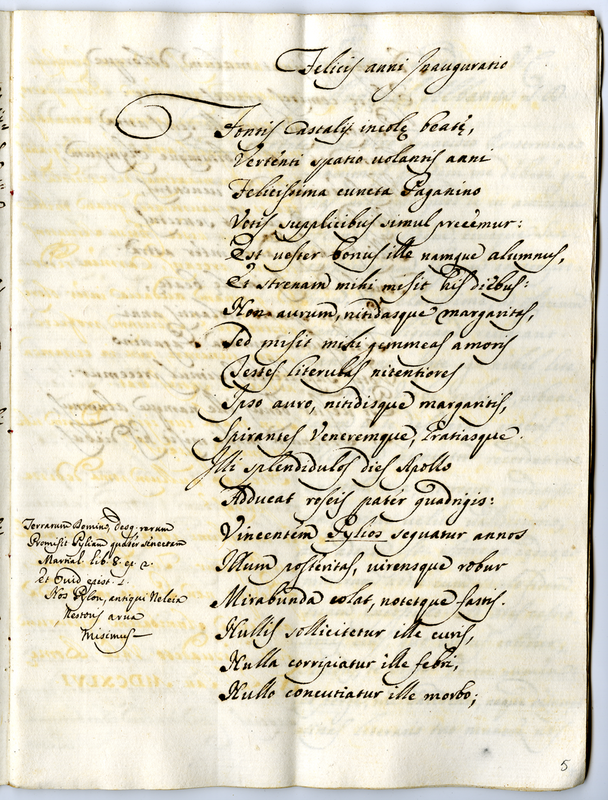 Felicis anni Inauguratio
Fontis Castalij incolę beatę,
Vertenti spatio uolantis anni
Felicissima cuncta Paganino
Votis supplicibus simul precemur:
Est uester bonus ille namque alumnus,
Et strenam mihi misit his diebus:
Non aurum, nitidasque margaritas,
Sed misit mihi gemmeas amoris
Testes literulas nitentiores
Ipso auro, nitidisque margaritis,
Spirantes Veneremque, Gratiasque.
Illi splendidulos dies Apollo
Adducat roseis pater quadrigis:
Vincentem Pylios sequatur annos
Illum posteritas, uirensque robur
Mirabunda colat, notetque fastis.
Nullis sollicitetur ille curis,
Nulla corripiatur ille febri,
Nullo concutiatur ille morbo;
Terrarum Domino, Deoq. rerum
Promisit Pyliam quater senectam
Martial. lib. 8. ep. 2.
et Ouid. epist. 1.
Nos Pylon, antiqui Neleia
Nestoris arua
Misimus
MDCXLVI
5